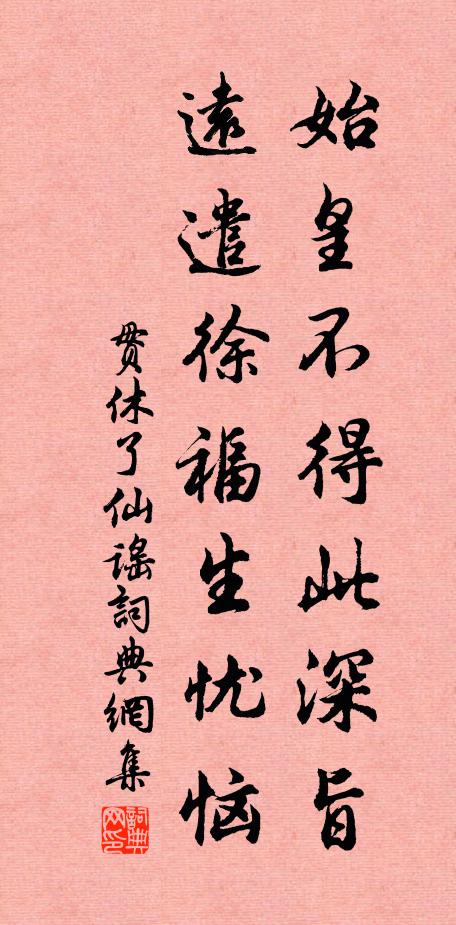 始皇不得此深旨
遠遣徐福生忧恼
贯休了仙謠詞典網集
詞典网印